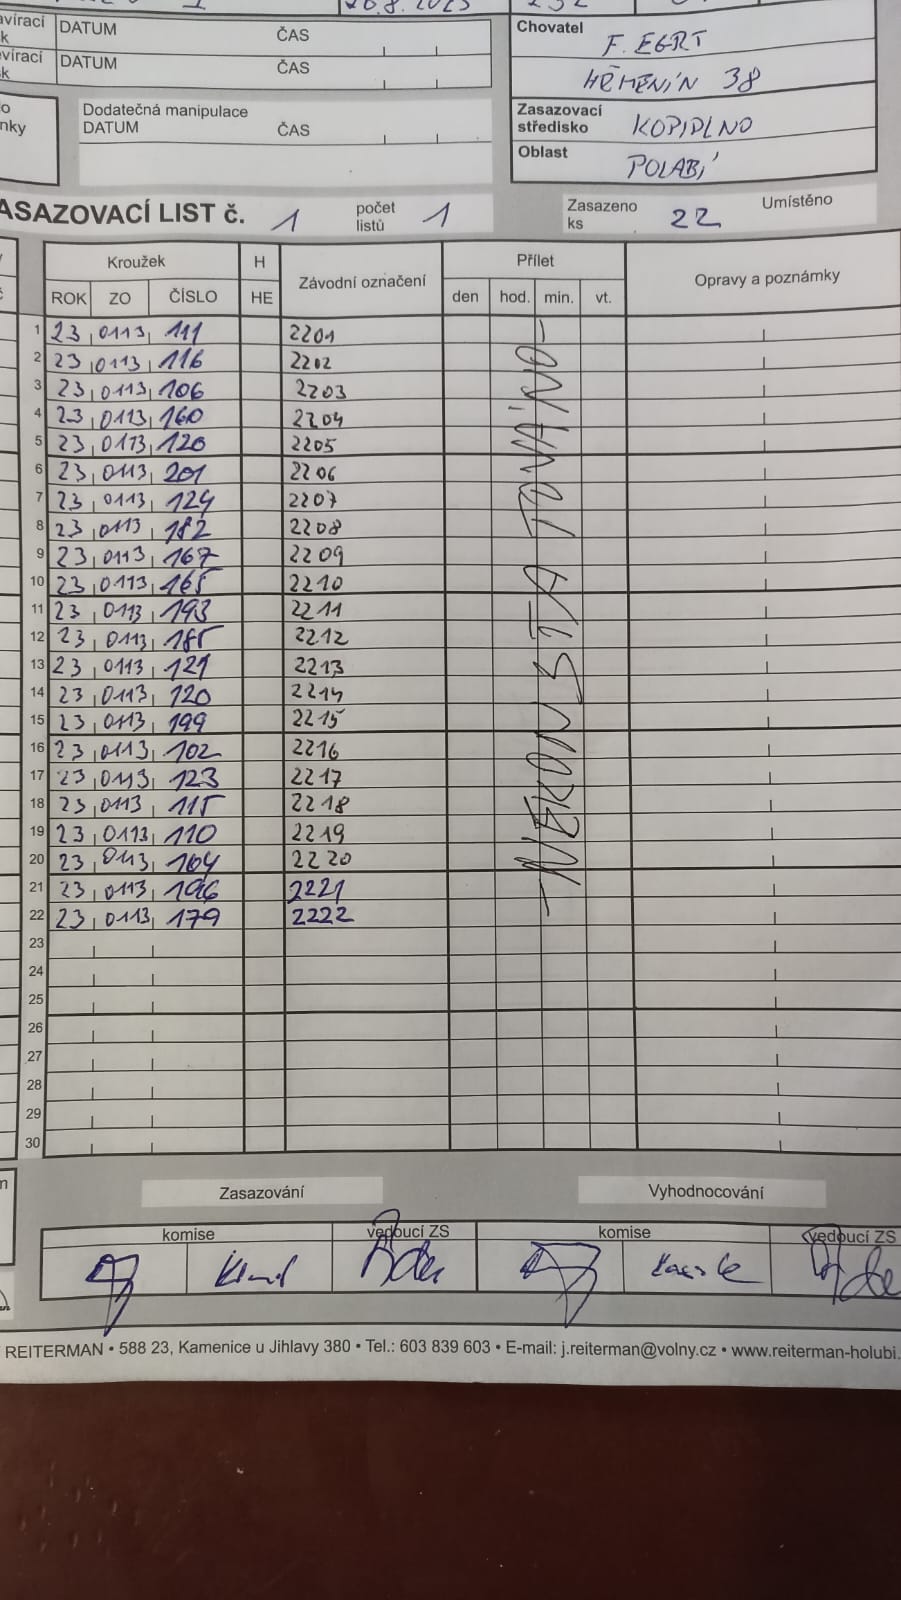 26.8.2023 232
avírací DATUM ČAS
k
evírací DATUM ČAS
sk
o
nky
Dodatečná manipulace
DATUM ČAS
Chovatel F. EGRT
HŘMENÍN 38
Zasazovací
středisko KOPIDLNO
Oblast POLABÍ
ASAZOVACÍ LIST č. 1 počet listů 1 Zasazeno ks 22 Umístěno
Kroužek H Závodní označení Přílet Opravy a poznámky
ROK ZO ČÍSLO HE den hod. min. vt.
1 23 0113 111 2201
2 23 0113 116 2202
3 23 0113 106 2203
4 23 0113 160 2204
5 23 0113 120 2205
6 23 0113 201 2206
7 23 0113 124 2207
8 23 0113 182 2208
9 23 0113 167 2209
10 23 0113 165 2210
11 23 0113 193 2211
12 23 0113 185 2212
13 23 0113 121 2213
14 23 0113 120 2214
15 23 0113 199 2215
16 23 0113 102 2216
17 23 0113 123 2217
18 23 0113 115 2218
19 23 0113 110 2219
20 23 0113 164 2220
21 23 0113 196 2221
22 23 0113 179 2222
23
24
25
26
27
28
29
30
Zasazování Vyhodnocování
komise vedoucí ZS komise vedoucí ZS
REITERMAN • 588 23, Kamenice u Jihlavy 380 • Tel.: 603 839 603 • E-mail: j.reiterman@volny.cz • www.reiterman-holubi.